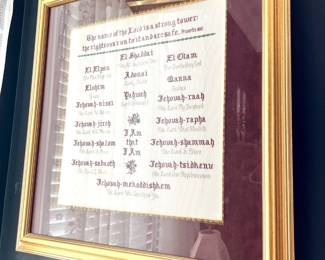 The name of the Lord is a strong tower;
the righteous run to it and are safe. Proverbs 18:10
El Shaddai
El Elyon
El Olam
The Most High God
The Everlasting God
Adonai
Qanna
Elohim
Jealous
Yahweh
Jehovah-nissi
Jehovah-raah
The Lord My Banner
The Lord My Shepherd
Jehovah-jireh
Jehovah-rapha
I Am
The Lord That Heals
that
Jehovah-shalom
Jehovah-shammah
I Am
The Lord Is Peace
The Lord Is There
Jehovah-sabaoth
Jehovah-tsidkenu
The Lord Our Righteousness
Jehovah-mekoddishkem
The Lord Who Sanctifies You